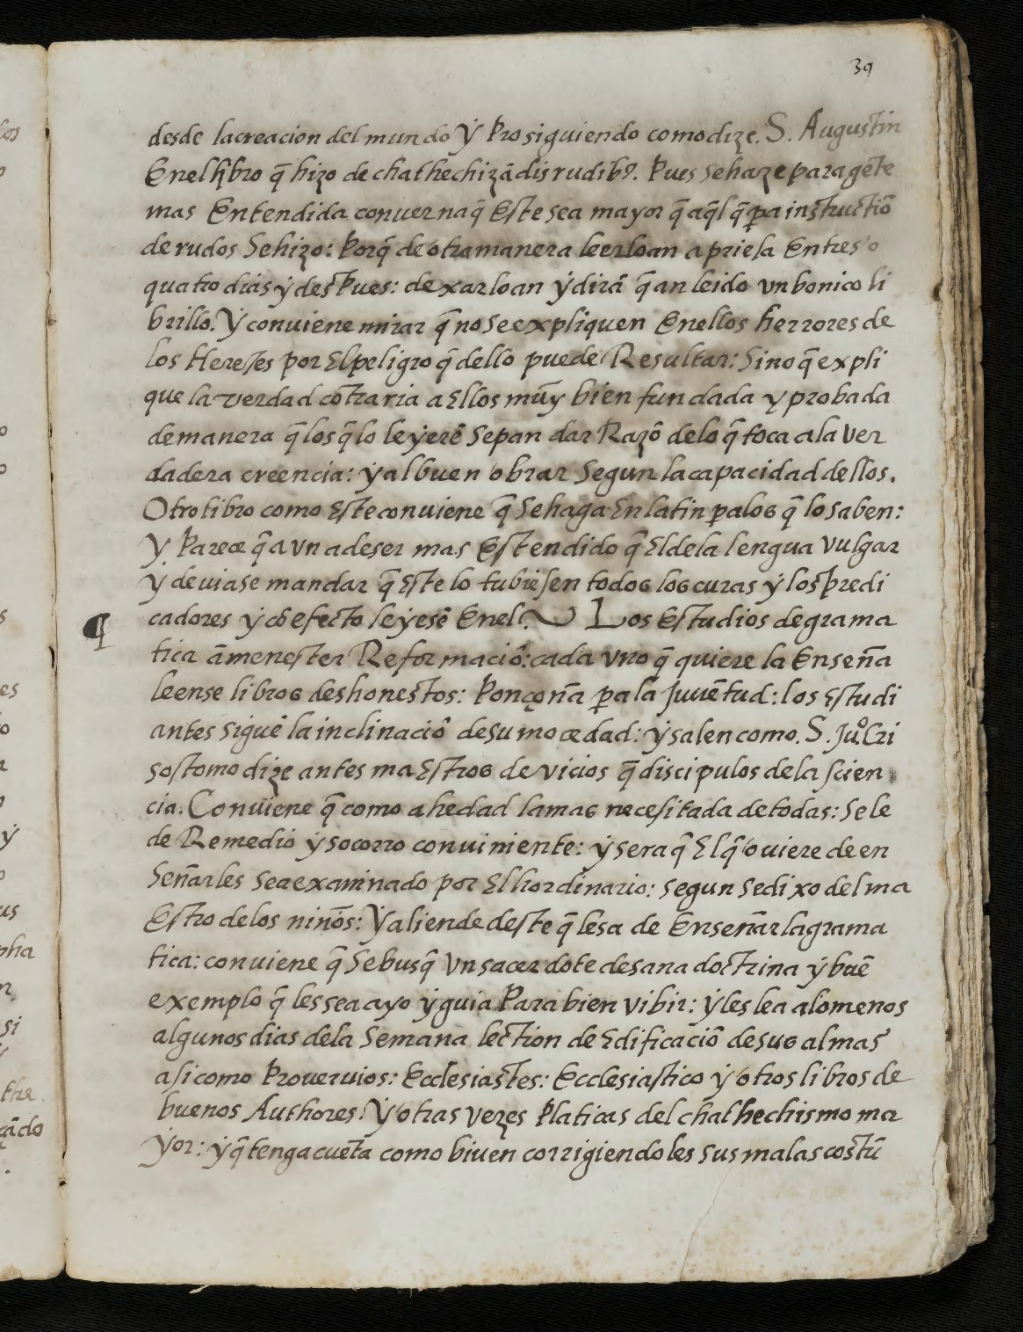 39
desde lacreacion del mundo Ý Prosiguiendo comodize. S. Augustin
Enel libro q̄ hizo de chathechizādis rudib9. Pues sehaze para gēte
mas Entendida converna q̄ Este sea mayor q̄ aq̄l q̄ pa instructiō
de rudos Sehizo: Porq̄ de otra manera leerloan apriesa En tres o
quatro dias ÿ despues: dexarloan ÿ dirā q̄ an leido vn bonico li
brillo. Y conviene mirar q̄ no se expliquen Enellos herrores de
los Hereses por El peligro q̄ dello puede Resultar: Sino q̄ expli
que la verdad cōtraria a Ellos muy bien fundada y probada
de manera q̄ los q̄ lo leÿerē Sepan dar Razō delo q̄ toca a la ver
dadera creencia: ÿ al buen obrar Segun la capacidad dellos.
Otro libro como Este conviene q̄ Se haga En latin pa los q̄ lo saben:
Y Parece q̄ a vn a de ser mas Estendido q̄ El dela lengua vulgar
Ÿ deviase mandar q̄ Este lo tubiesen todos los curas ÿ los predi
cadores ÿ cō efecto leÿesē Enel. Los Estudios de grama
¶
tica āmenester Reformaciō: cada vno q̄ quiere la Enseña
leense libros deshonestos: Ponçoña pa la juvētud: los Estudi
antes siguē la inclinaciō de su mocedad: ÿ salen como. S. Juº Cri
sostomo dize antes maestros de vicios q̄ discipulos de la scien
cia. Conviene q̄ como a hedad la mas necesitada de todas: Se le
de Remedio ÿ socorro conviniente: ÿ sera q̄ El q̄ oviere de en
Señarles sea examinado por El hordinario: segun se dixo del ma
Estro de los niños: Ÿ aliende deste q̄ les a de Enseñar la grama
tica: conviene q̄ Se busq̄ Vn sacerdote de sana doctrina ÿ buē
exemplo q̄ les sea ayo ÿ guia Para bien vibir: ÿ les lea alomenos
algunos dias dela Semana lection de Edificaciō de sus almas
asi como Provervios: Ecclesiastes: Ecclesiastico ÿ otros libros de
buenos Authores: Ÿ otras vezes Platicas del chathechismo ma
Ÿor: ÿ q̄ tenga cuēta como biven corrigiendoles sus malas costū